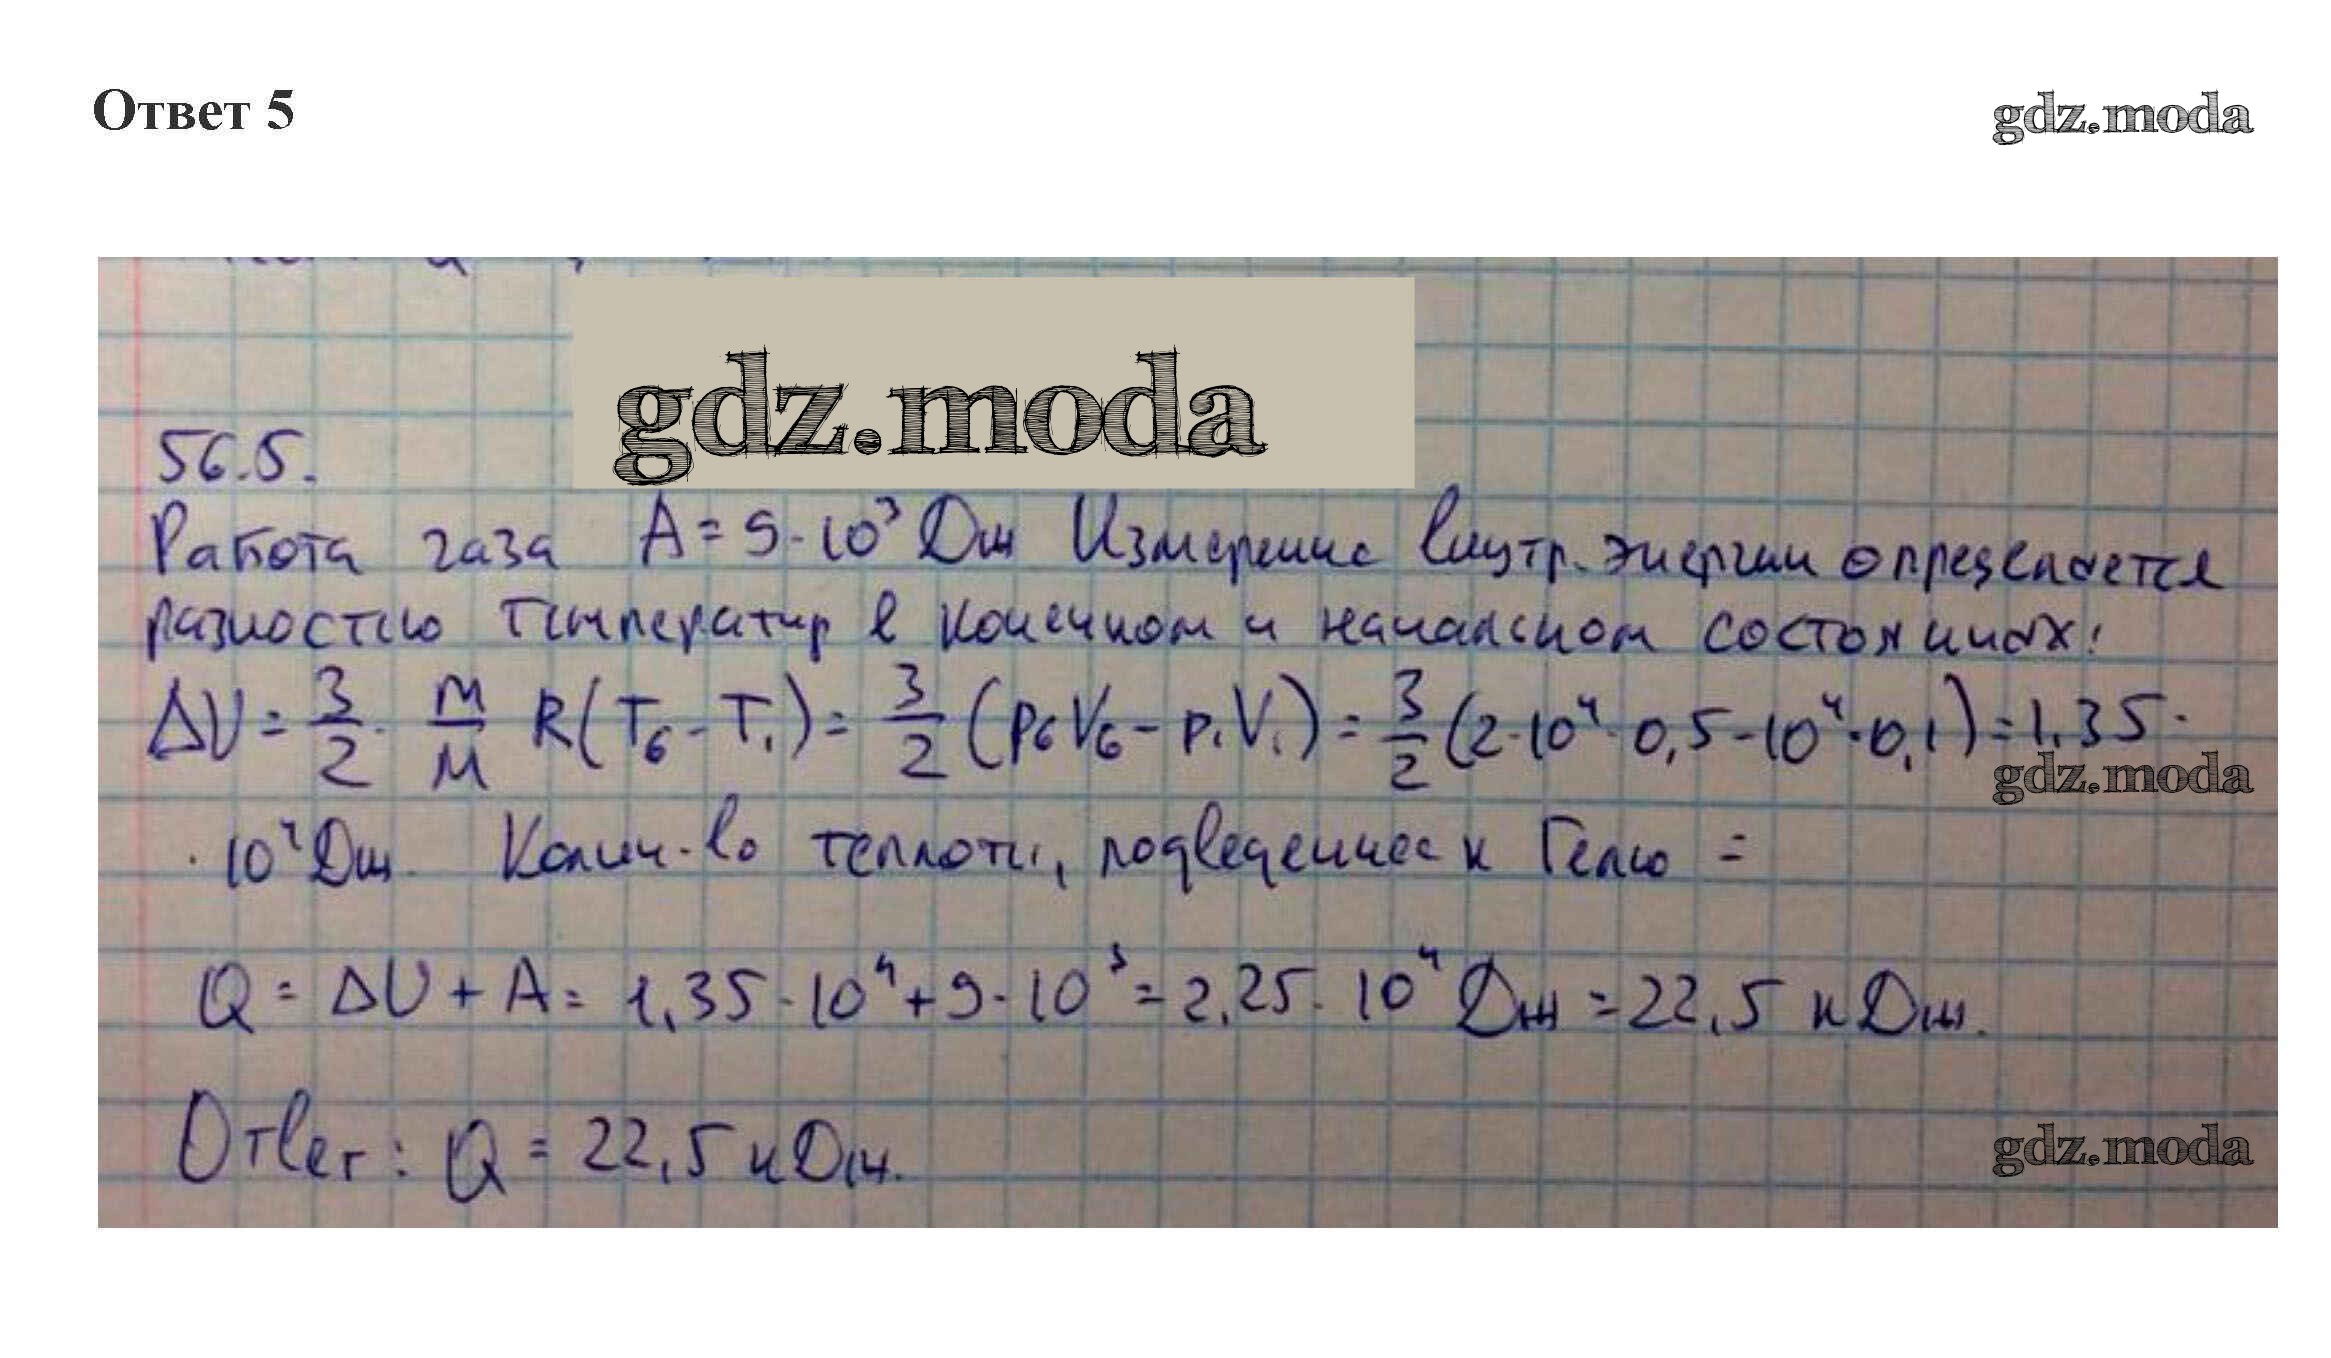 Ответ 5
gdz.moda
gdz.moda
56.5.
Работа газа A = 9·10³ Дж Измерение внутр. энергии определяется
разностью температур в конечном и начальном состояниях:
ΔU = 3/2 · m/M R(T₆ - T₁) = 3/2 (p₆V₆ - p₁V₁) = 3/2 (2·10⁴·0,5 - 10⁴·0,1) = 1,35·
gdz.moda
·10⁴ Дж. Колич-во теплоты, подведенное к Гелию =
Q = ΔU + A = 1,35·10⁴ + 9·10³ = 2,25·10⁴ Дж = 22,5 кДж.
Ответ: Q = 22,5 кДж.
gdz.moda